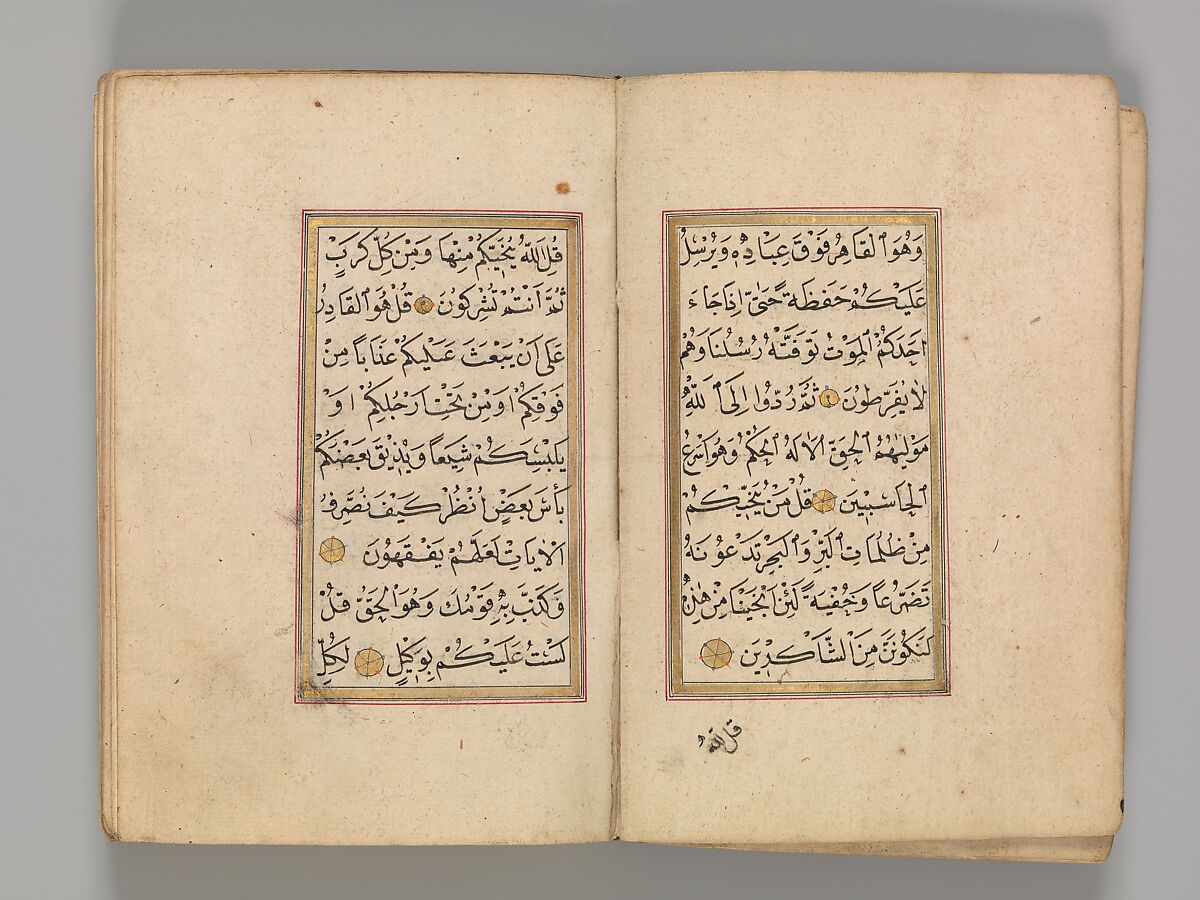 وَهُوَ ٱلْقَاهِرُ فَوْقَ عِبَادِهِ وَيُرْسِلُ
عَلَيْكُمْ حَفَظَةً حَتَّىٰ إِذَا جَاءَ
اَحَدَكُمُ ٱلْمَوْتُ تَوَفَّتْهُ رُسُلُنَا وَهُمْ
لَا يُفَرِّطُونَ ثُمَّ رُدُّوا اِلَى ٱللّٰهِ
مَوْلٰيهُمُ ٱلْحَقِّ اَلَا لَهُ ٱلْحُكْمُ وَهُوَ اَسْرَعُ
ٱلْحَاسِبِينَ قُلْ مَنْ يُنَجِّيكُمْ
مِنْ ظُلُمَاتِ ٱلْبَرِّ وَٱلْبَحْرِ تَدْعُونَهُ
تَضَرُّعاً وَخُفْيَةً لَئِنْ اَنْجَيْتَنَا مِنْ هٰذِهِ
لَنَكُونَنَّ مِنَ ٱلشَّاكِرِينَ
قل الله
قُلِ ٱللّٰهُ يُنَجِّيكُمْ مِنْهَا وَمِنْ كُلِّ كَرْبٍ
ثُمَّ اَنْتُمْ تُشْرِكُونَ قُلْ هُوَ ٱلْقَادِرُ
عَلٰى اَنْ يَبْعَثَ عَلَيْكُمْ عَذَاباً مِنْ
فَوْقِكُمْ اَوْ مِنْ تَحْتِ اَرْجُلِكُمْ اَوْ
يَلْبِسَكُمْ شِيَعاً وَيُذِيقَ بَعْضَكُمْ
بَأْسَ بَعْضٍ اُنْظُرْ كَيْفَ نُصَرِّفُ
ٱلْاٰيَاتِ لَعَلَّهُمْ يَفْقَهُونَ
وَكَذَّبَ بِهِ قَوْمُكَ وَهُوَ ٱلْحَقُّ قُلْ
لَسْتُ عَلَيْكُمْ بِوَكِيلٍ لِكُلِّ